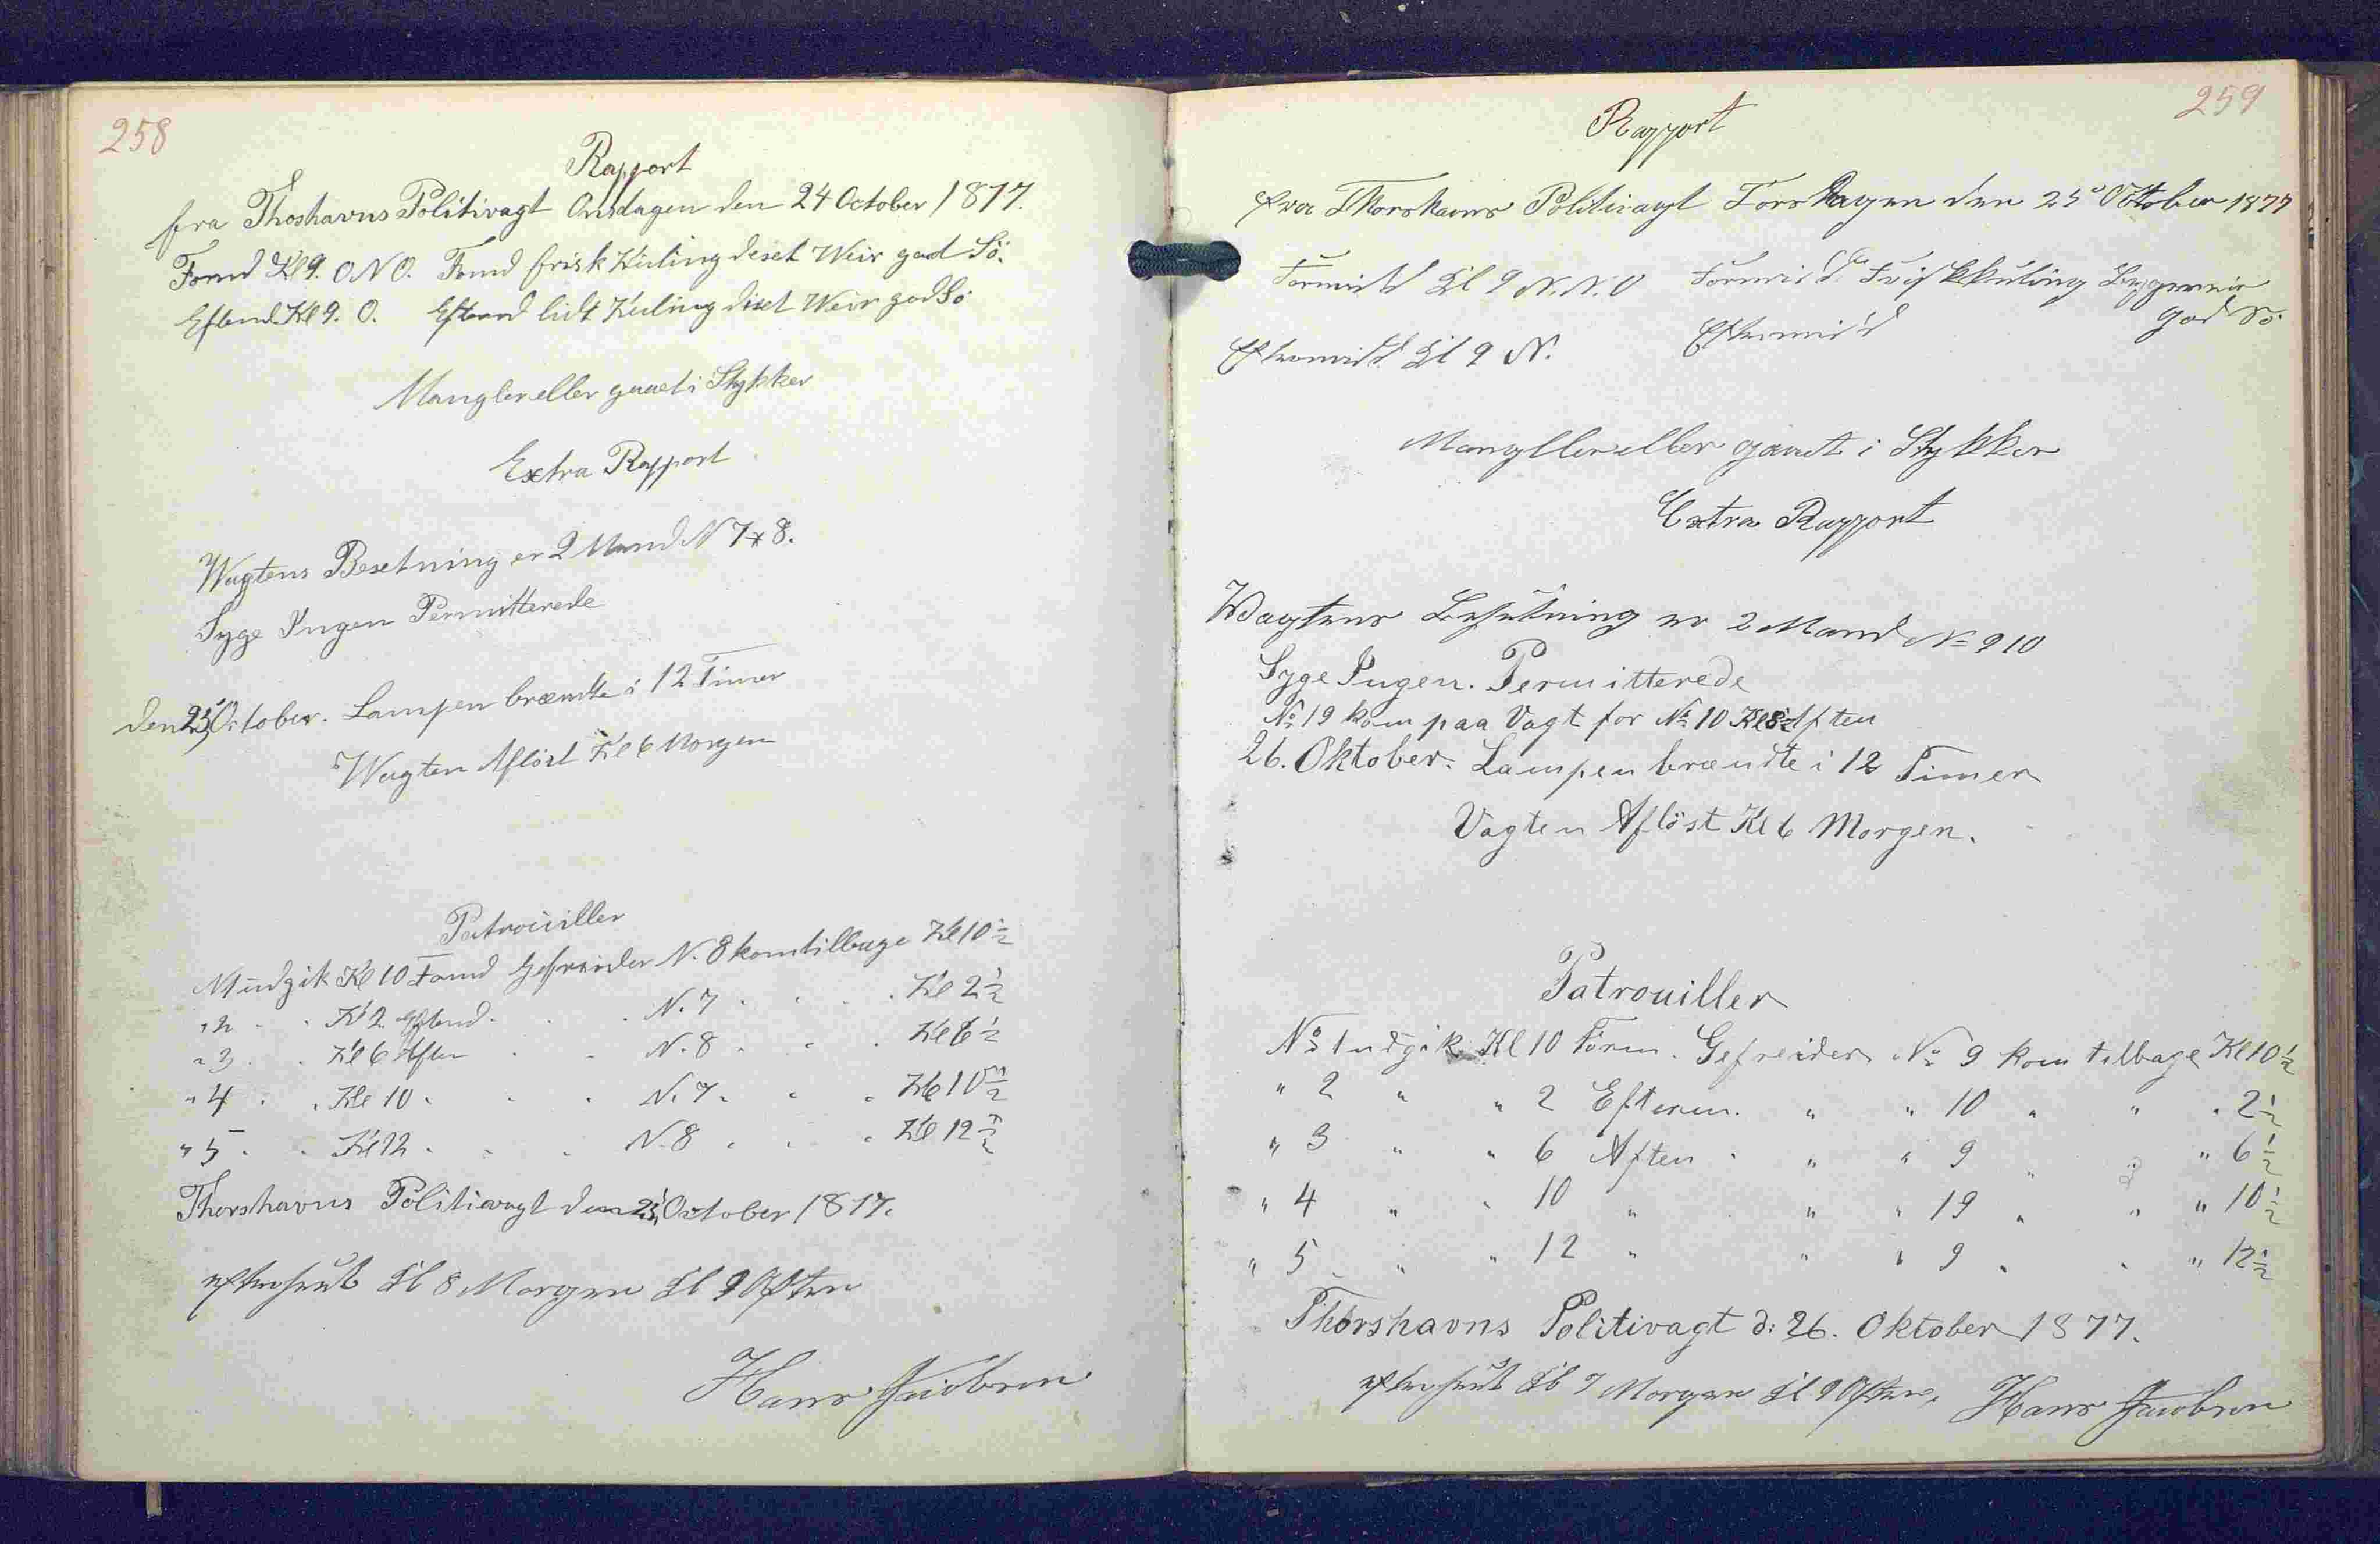 258
Rapport
fra Thoshavns Politivagt Onsdagen den 24 October 1877.
Formd Kl 9. O N O. Formd frisk Kuling diset Weir god Sö.
Eftemd. Kl 9. O. Eftemd lidt Kuling diset Weir god Sö
Mangler eller gaaet i Stykker
Extra Rapport
Wagtens Besetning er 2 Mand N 7 & 8.
Syge Ingen Permitterede
den 25 October. Lampen brændte i 12 Timer
Wagten Aflöst Kl 6 Morgen
Patrouiller
N 1 udgik Kl 10 Formd Gefreider N. 8 kom tilbage Kl 10 1/2
" 2 " " Kl 2 Eftemd. " " N. 7 " " " Kl 2 1/2
" 3 " " Kl 6 Aften " " N. 8 " " " Kl 6 1/2
" 4 " " Kl 10 " " " N. 7 " " " Kl 10 1/2
" 5 " " Kl 12 " " " N. 8 " " " Kl 12 1/2
Thorshavns Politivagt den 25 October 1877.
efterseet Kl 8 Morgen Kl 9 Aften
Hans Jacobsen
259
Rapport
fra Thorshavns Politivagt Torsdagen den 25 October 1877
Formidd Kl 9 N.N.O Formidd Friskkuling Bygeveir
god Sö.
Eftermidd Kl 9 N. Eftermidd
Mangller eller gaaet i Stykker
Extra Rapport
Wagtens Besetning er 2 Mand No 9 10
Syge Ingen. Permitterede
No 19 kom paa Vagt for No 10 Kl 8 1/2 Aften
26. Oktober. Lampen brændte i 12 Timer
Vagten Aflöst Kl 6 Morgen.
Patrouiller
No 1 udgik Kl 10 Form. Gefreider No 9 kom tilbage Kl 10 1/2
" 2 " " 2 Efterm. " " 10 " " " 2 1/2
" 3 " " 6 Aften " " " 9 " " " 6 1/2
" 4 " " 10 " " " 19 " " " 10 1/2
" 5 " " 12 " " " 9 " " " 12 1/2
Thorshavns Politivagt d: 26. Oktober 1877.
efterseet Kl 7 Morgen Kl 9 Aften. Hans Jacobsen